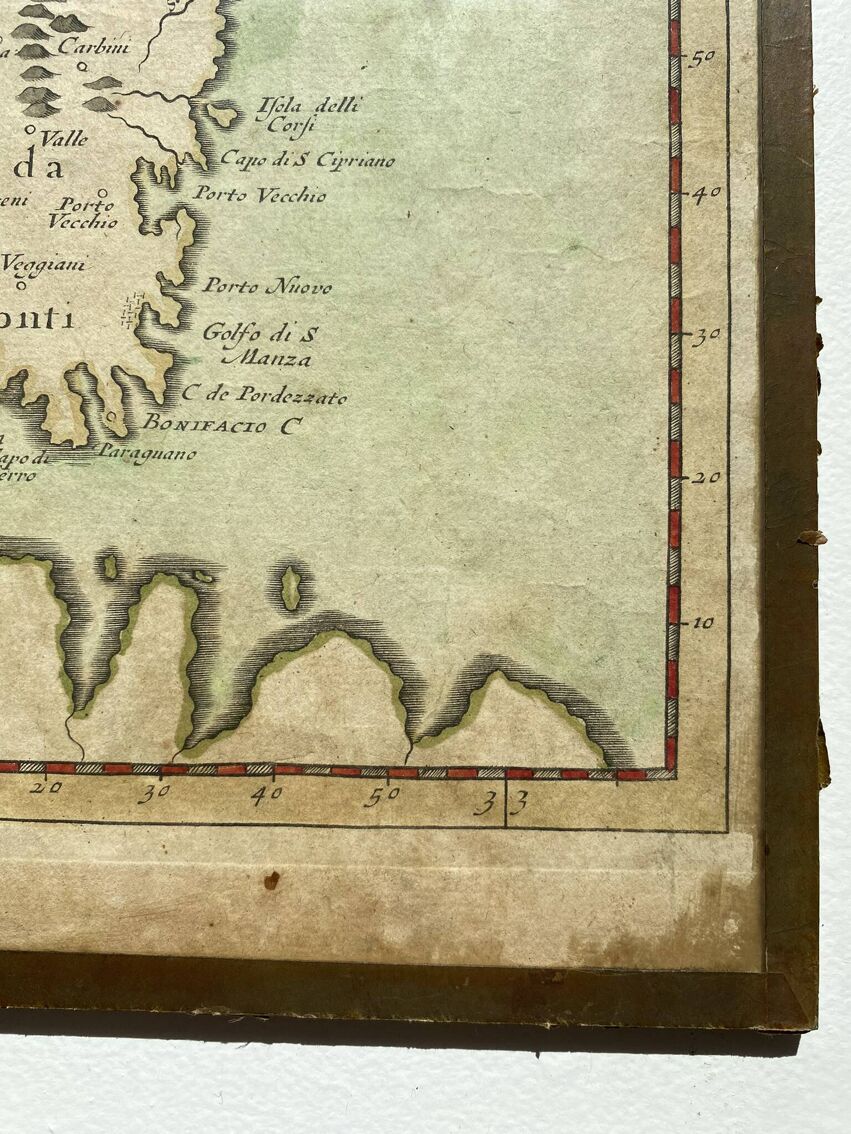 Carbini
Isola delli
Corsi
Valle
da
Capo di S Cipriano
Porto
Vecchio
Porto Vecchio
Veggiani
Porto Nuovo
onti
Golfo di S
Manza
C de Pordezzato
BONIFACIO C
Paraguano
50
40
30
20
10
20
30
40
50
33